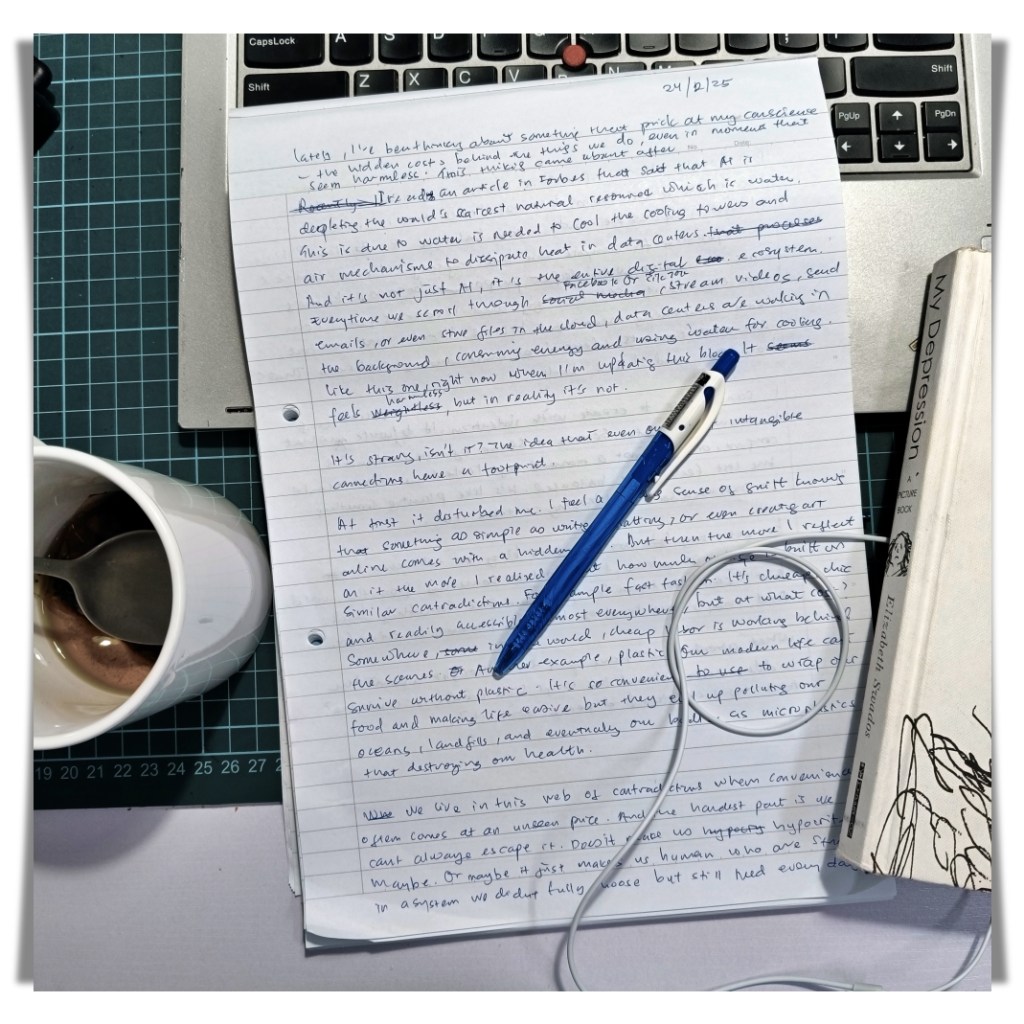 CapsLock A S D F G
Shift Z X C V
Shift
PgUp ↑ PgDn
← ↓ →
24/2/25
lately, I've been thinking about something that prick at my conscience
- the hidden costs behind the things we do, even in moment that
seem harmless. This thikig came about after
Recently I read an article in Forbes that said that AI is
depleting the world's scarcest natural resource which is water.
This is due to water is needed to cool the cooling towers and
air mechanisms to dissipate heat in data centers. that processes
And it's not just AI, it is the entire digital ecosystem.
Facebook or tiktok
Everytime we scroll through social media, stream videos, send
emails, or even store files in the cloud, data centers are working in
the background, consuming energy and using water for cooling.
like this one, right now when I'm updating this blog. It seems
harmless
feels weightless, but in reality it's not.
It's strang, isn't it? The idea that even intangible
connections have a footprint
At first it disturbed me. I feel a sense of guilt knowing
that something as simple as or even creating art
online comes with a hidden But then the more I reflect
on it the more I realised how much is built on
similar contradictions. For example fast It's cheap, chic
and readily accessible everywhere, but at what cost?
Somewhere, some in world, cheap is working behind
the scenes. example, plastic. Our modern life can't
survive without plastic. It's so convenient to use to wrap our
food and making life easier but they end up polluting our
oceans, landfills, and eventually our as microplastics
that destroying our health.
We live in this web of contradictions where convenience
often comes at an unseen price. And the hardest part is we
cant always escape it. Does it make us hypocrites
Maybe. Or maybe it just makes us human who are
in a system we didnt fully choose but still need every day
My Depression
A
PICTURE
BOOK
Elizabeth Swados
19 20 21 22 23 24 25 26 27 2